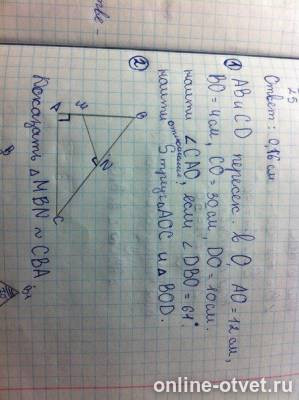 25
Ответ: 0,16 см
стве -
① AB и CD пересек. в O, AO = 12 см,
BO = 4 см, CO = 30 см, DO = 10 см.
найти ∠CAO, если ∠DBO = 61°.
отношение
найти S треуг AOC и △ BOD.
②
A M B
N
C
Доказать △MBN ~ CBA
B
B1
online-otvet.ru